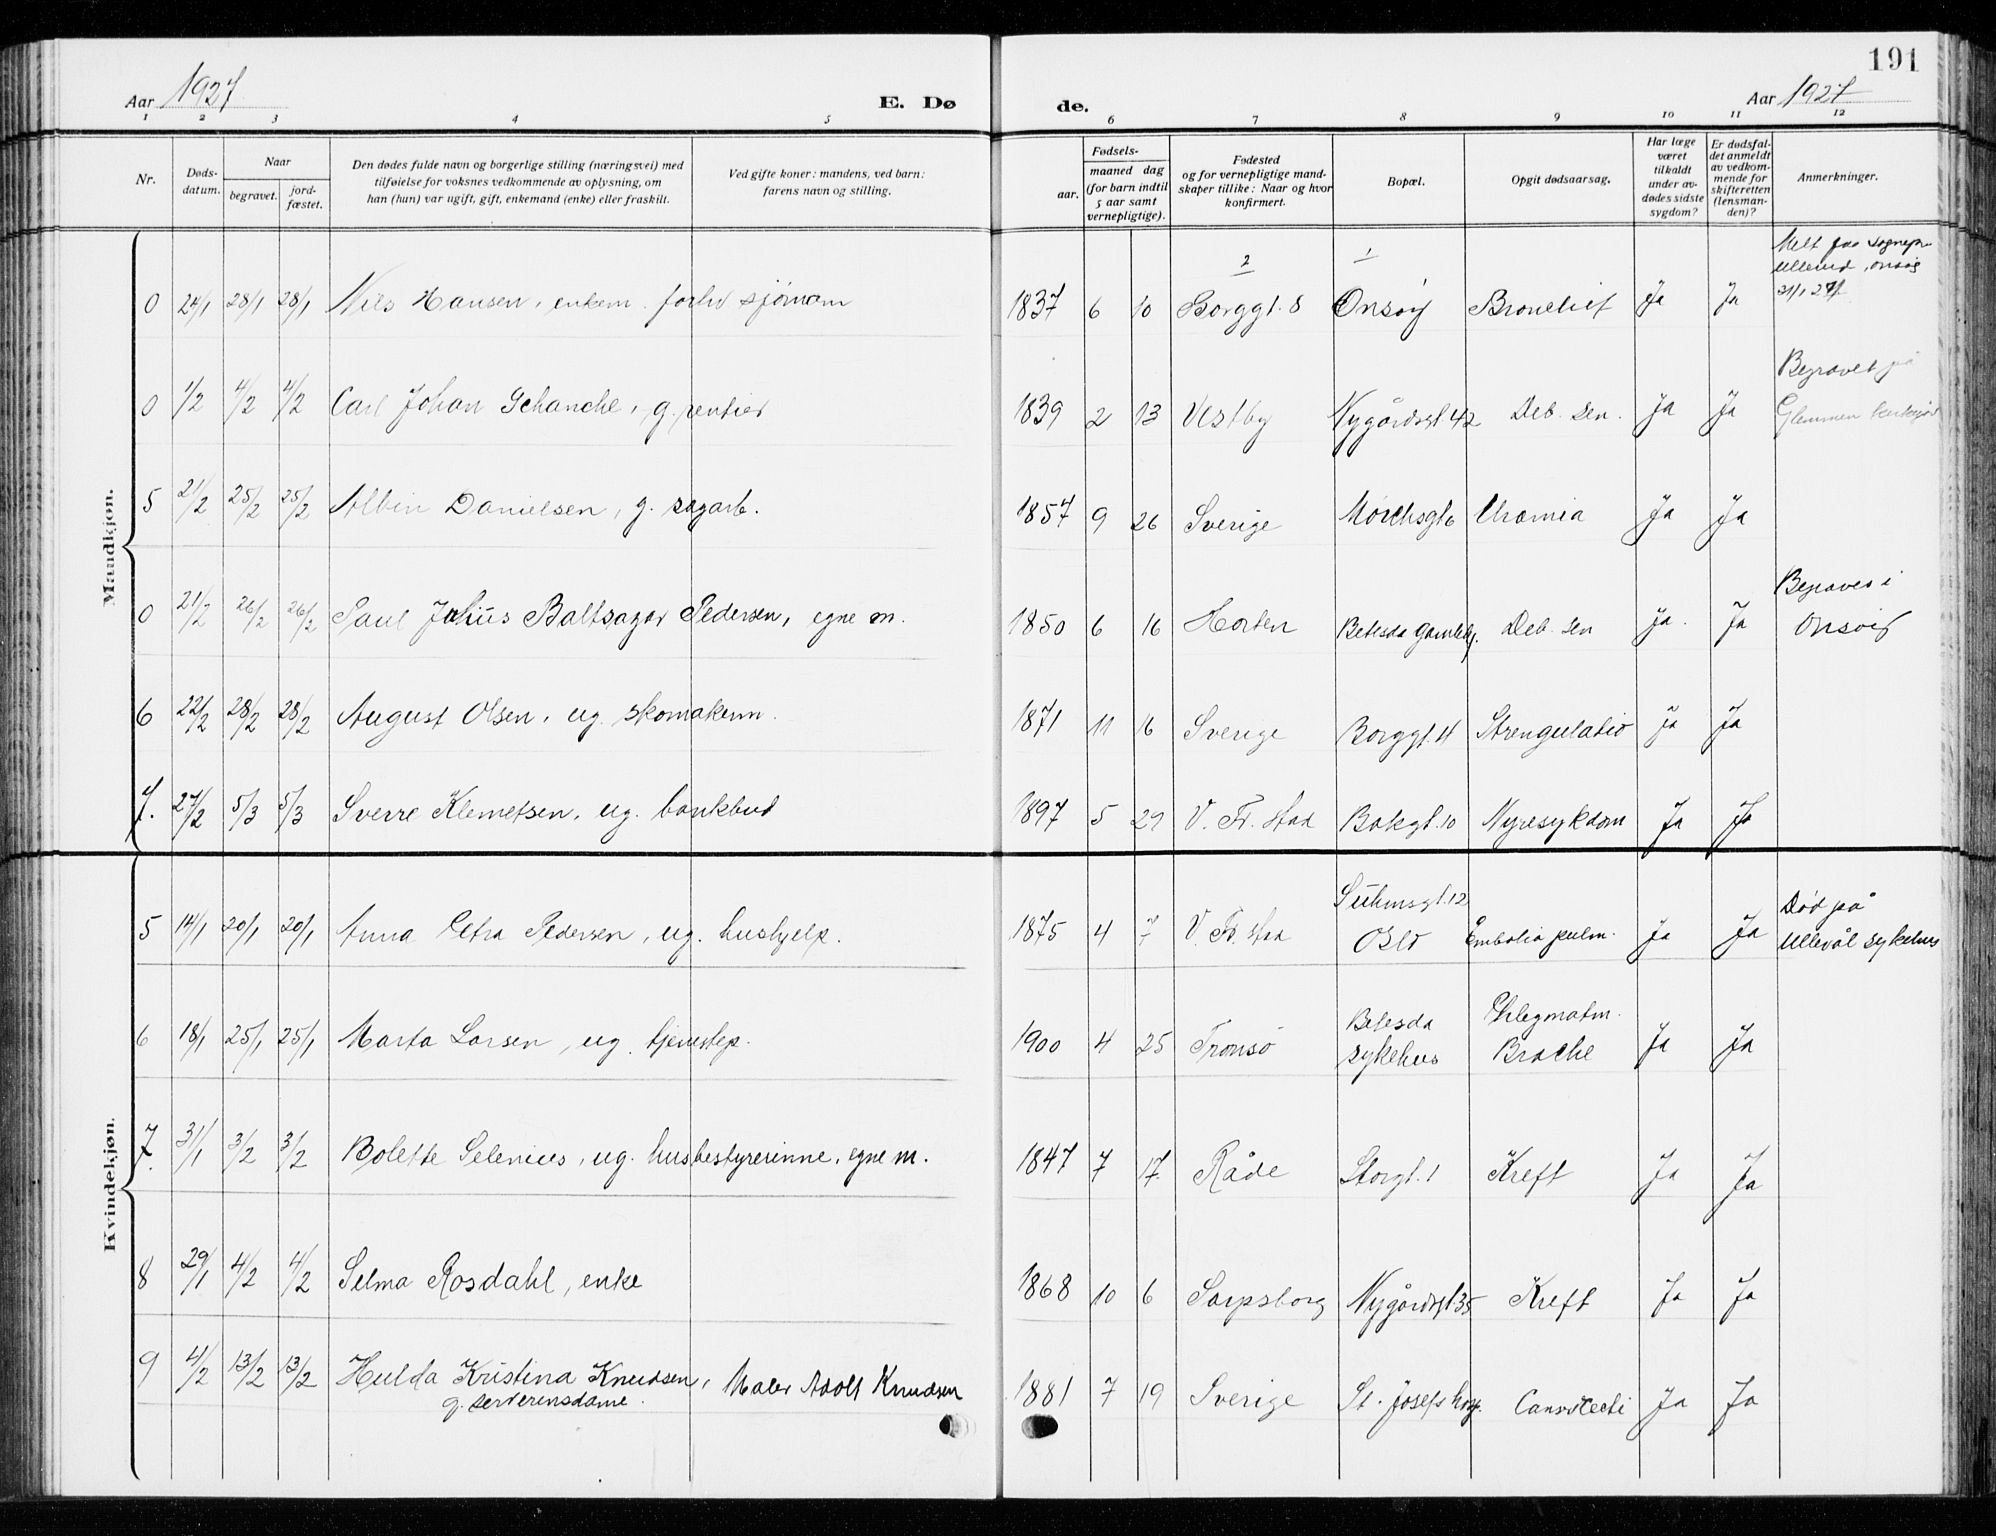 191
Aar 1927 E. Dø de. Aar 1927
1 2 3 4 5 6 7 8 9 10 11 12
Nr.
Døds-
datum.
Naar
begravet.
jord-
fæstet.
Den dødes fulde navn og borgerlige stilling (næringsvei) med
tilføielse for voksnes vedkommende av oplysning, om
han (hun) var ugift, gift, enkemand (enke) eller fraskilt.
Ved gifte koner: mandens, ved barn:
farens navn og stilling.
Fødsels-
aar.
maaned dag
(for barn indtil
5 aar samt
vernepligtige).
Fødested
og for vernepligtige mand-
skaper tillike: Naar og hvor
konfirmert.
Bopæl.
Opgit dødsaarsag.
Har læge
været
tilkaldt
under av-
dødes sidste
sygdom?
Er dødsfal-
det anmeldt
av vedkom-
mende for
skifteretten
(lensman-
den)?
Anmerkninger.
Mandkjøn.
2 1
0 24/1 28/1 28/1 Nils Hansen, enkem. forhv sjömam 1837 6 10 Borggt. 8 Onsöy Ja Ja
0 1/2 4/2 4/2 Carl Johan Schanche, g. rentier 1839 2 13 Vestby Nygårdsgt. 42 Deb. sen. Ja Ja Begravet på
Glemmen
5 21/2 25/2 25/2 Albin Danielsen, g. sagarb. 1857 9 26 Sverige Mørchsgt 6 Uræmia Ja Ja
0 21/2 26/2 26/2 Paul Julius Baltsazar Pedersen, egne m. 1850 6 16 Horten Betesda gamleh. Deb. sen Ja. Ja Begraves i
Onsöy
6 22/2 28/2 28/2 August Olsen, ug. skomakerm. 1871 11 16 Sverige Borggt. 4 Strengulatio Ja Ja
7. 27/2 5/3 5/3 Sverre Klemetsen, ug. bankbud 1897 5 29 V. Fr. stad Bakgt. 10 Nyresykdom Ja Ja
Kvindekjøn.
5 14/1 20/1 20/1 Anna Petra Pedersen, ug. hushjelp. 1875 4 7 V. Fr. stad Suhmsgt. 12
Oslo Embolia pulm. Ja Ja Död på
Ullevål sykehus
6 18/1 25/1 25/1 Marta Larsen, ug. tjenestep. 1900 4 25 Tromsö Betesda
sykehus Phlegmatm.
Brache Ja Ja
7. 31/1 3/2 3/2 Bolette Selenius, ug. husbestyrerinne, egne m. 1847 7 17. Råde Storgt. 1 Kreft Ja Ja
8 29/1 4/2 4/2 Selma Rosdahl, enke 1868 10 6 Sarpsborg Nygårdsgt. 35 Kreft Ja Ja
9 4/2 13/2 13/2 Hulda Kristina Knudsen, Maler Adolf Knudsen 1881 7 19 Sverige St. Josefs hosp. Ja Ja
g. serveringsdame.